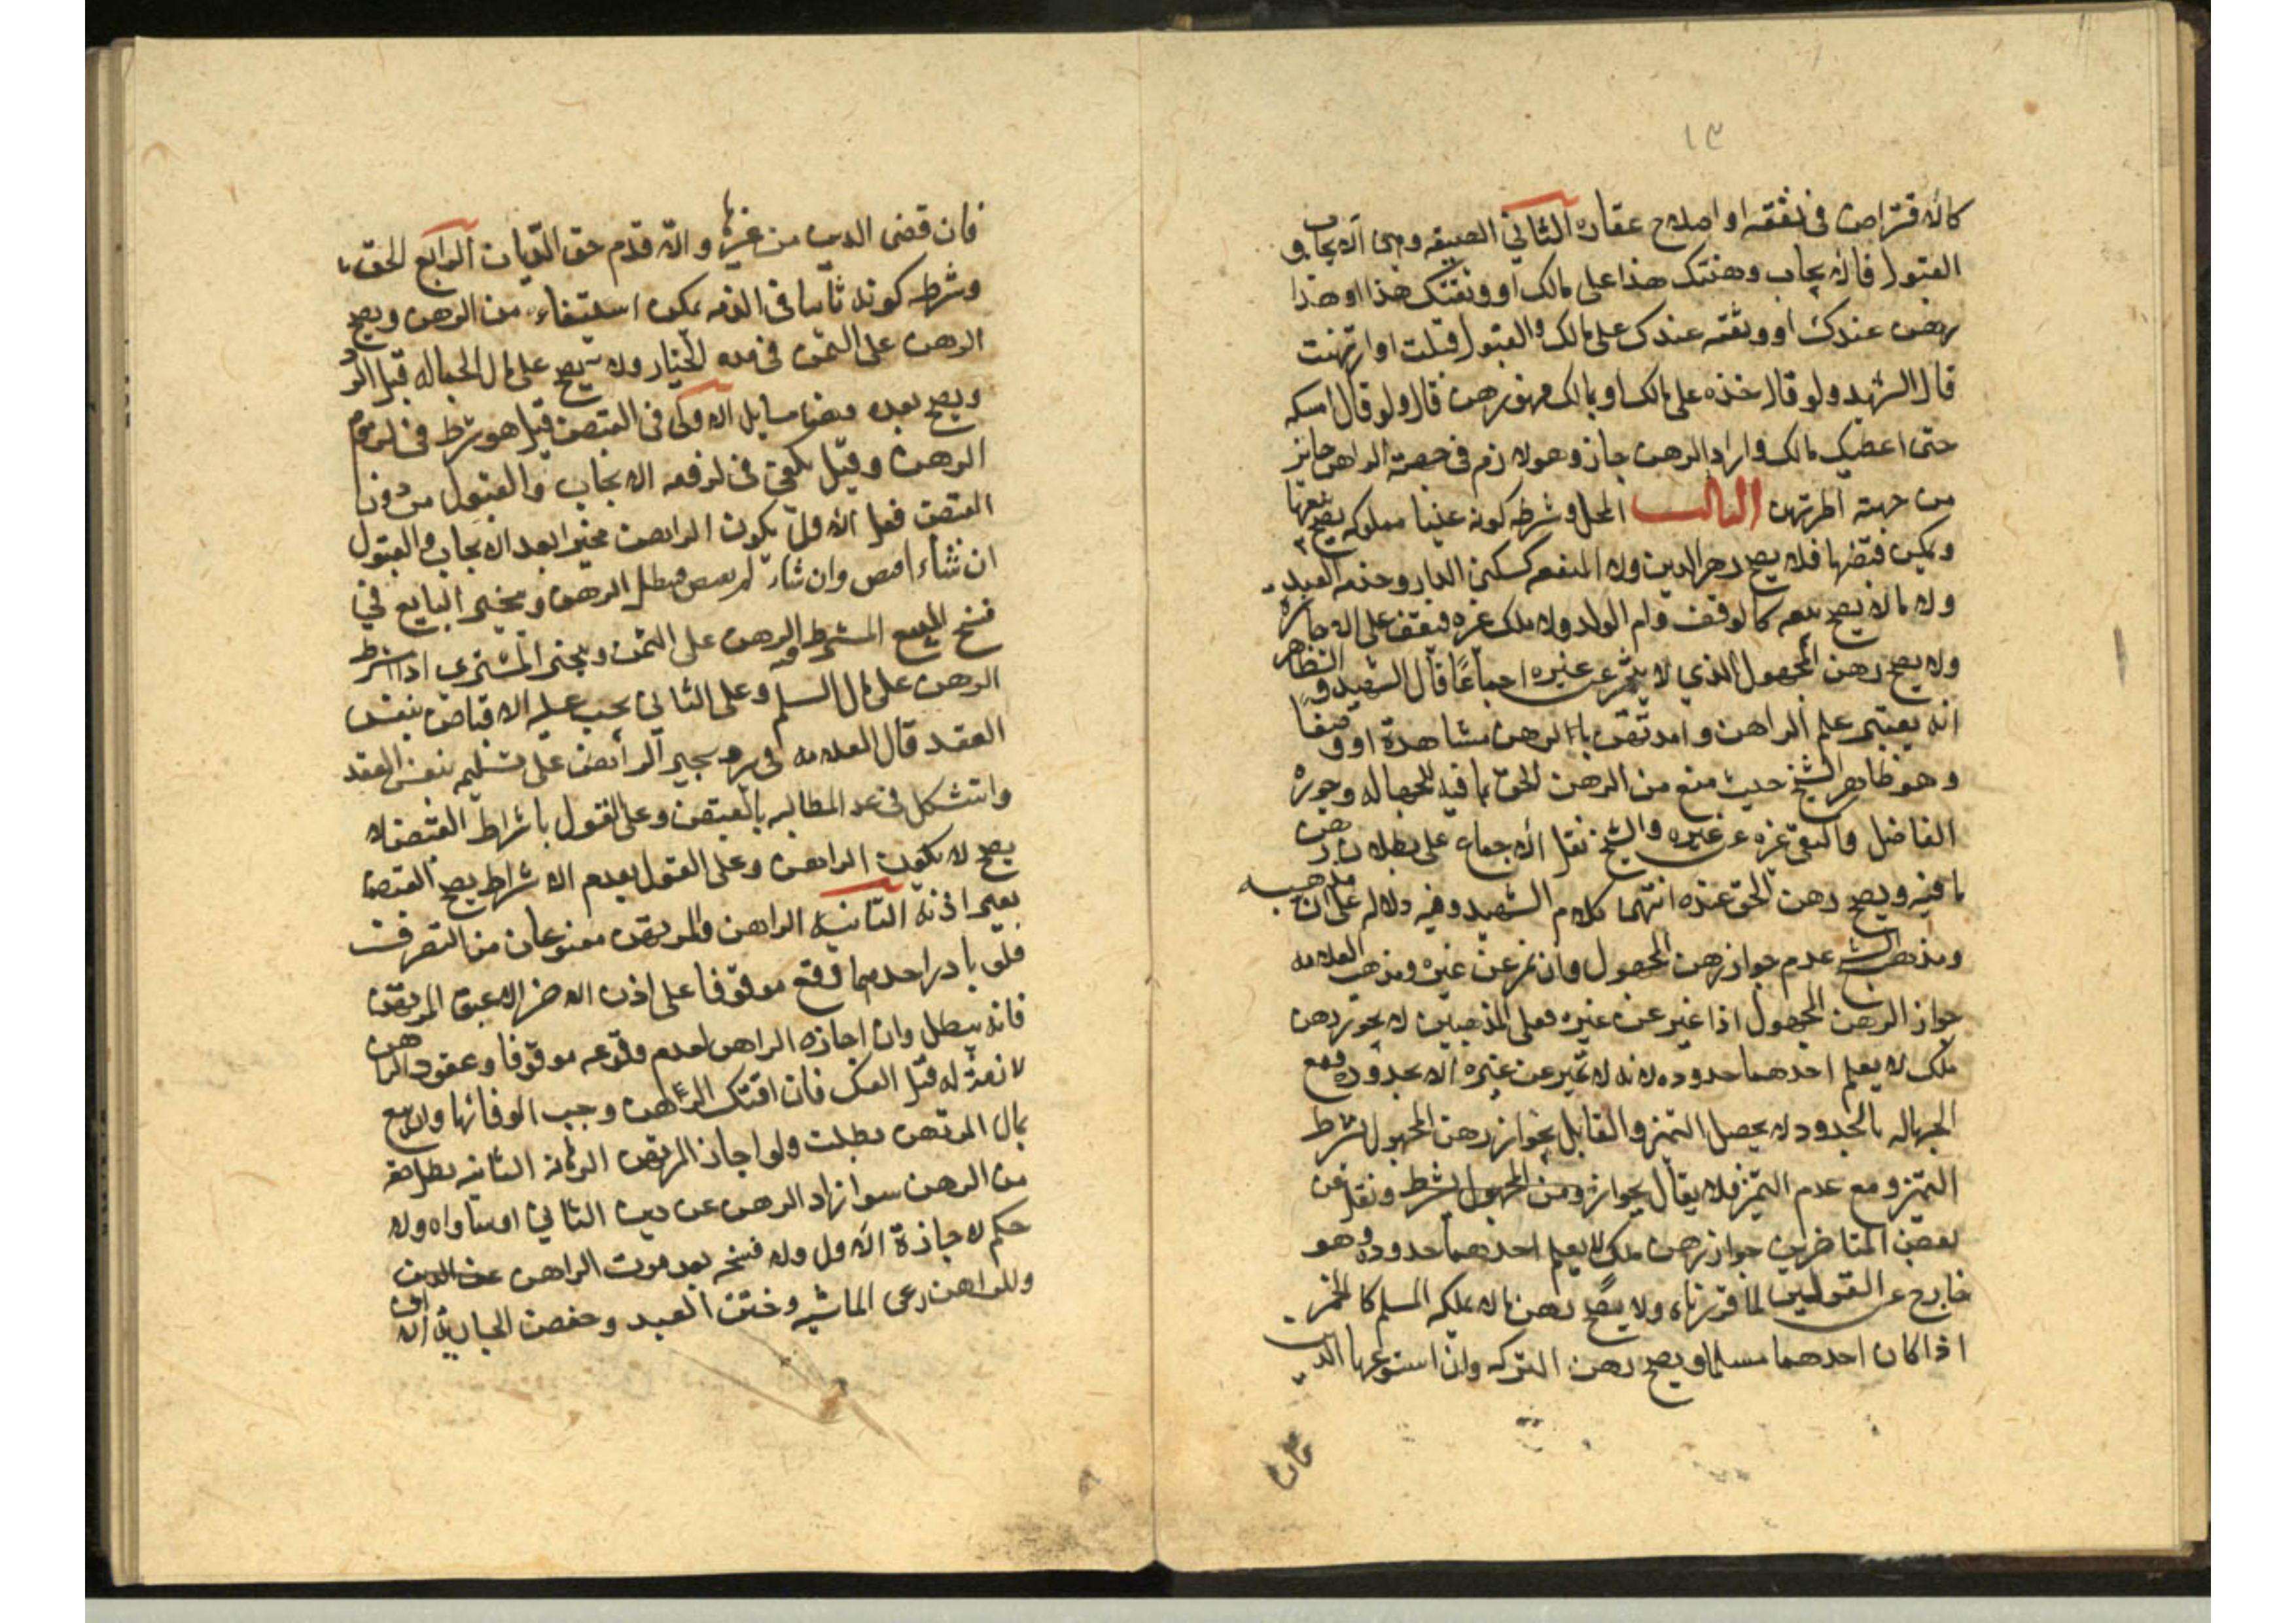 ١٣
كالاقتراض فى نفقته او اصلاح عقاره الثاني الصيغه وهى الايجاب و
القبول فالايجاب رهنتك هذا على مالك او وثقتك هذا او هذا
رهن عندك او وثقته عندك على مالك والقبول قبلت او ارتهنت
قال الشهيد ولو قال خذه على مالك او بمالك فهو رهن قال ولو قال امسكه
حتى اعطيك مالك واراد الرهن جاز وهو لازم فى جهة الراهن جايز
من جهة المرتهن الثالث المحل وشرطه كونه عينا مملوكه يصح بيعها
ويمكن قبضها فلا يصح رهن الدين ولا المنفعه كسكنى الدار وخدمه العبد
ولا مالا يصح بيعه كالوقف وام الولد ولا ملك غيره فيقف على الاجازه
ولا يصح رهن المجهول الذي لا يتميز عن غيره اجماعًا قال الشهيد والظاهر
انه يعتبر علم الراهن والمرتهن بالرهن مشاهدة او وصفًا
وهو ظاهر الشيخ حيث منع من رهن الحق بما فيه للجهاله وجوزه
الفاضل واكتفى بتميزه عن غيره والشيخ نقل الاجماع على بطلان رهن
ما فيه ويصح رهن الحق عنده انتهى كلام الشهيد وفيه دلاله على ان مذهبه
ومذهب الشيخ عدم جواز رهن المجهول وان تميز عن غيره ومذهب العلامه
جواز الرهن المجهول اذا تميز عن غيره فعلى المذهبين لا يجوز رهن
ملك لا يعلم احدهما حدوده لانه لا تميز عن غيره الا بحدوده فمع
الجهاله بالحدود لا يحصل التميز والقايل بجواز رهن المجهول بشرط
التميز ومع عدم التميز فلا يقال بجواز رهن المجهول بشرط ونقل عن
بعض المتاخرين جواز رهن ملك لا يعلم احدهما حدوده وهو
خارج عن القولين لما قررناه ولا يصح رهن مالا يملكه المسلم كالخمر
اذا كان احدهما مسلما ويصح رهن التركه وان استوعبها الدين
فان
فان قضى الدين من غيرها والا قدم حق الديان الرابع الحق
وشرطه كونه ثابتا فى الذمه يمكن استيفاءه من الرهن ويصح
الرهن على الثمن فى مده الخيار ولا يصح على مال الجعاله قبل الرد
ويصح بعده وهنا مسايل الاولى فى القبض قيل هو شرط فى لزوم
الرهن وقيل يكفى فى لزومه الايجاب والقبول من دون
القبض فعلى الاول يكون الراهن مخيرا بعد الايجاب والقبول
ان شاء اقبض وان شاء لم يقبض فيبطل الرهن ويتخير البايع في
فسخ البيع المشترط فيه الرهن على الثمن ويتخير المشترى اذا اشترط
الرهن على مال السلم وعلى الثاني يجب عليه الاقباض بنفس
العقد قال العلامه فى يجبر الراهن على تسليمه بنفس العقد
واستشكل فى عد المطالبه بالقبض وعلى القول باشراط القبض لا
يصح لا يكون الراهن وعلى القول بعدم الاشراط يصح القبض
بغير اذنه الثانيه الراهن والمرتهن ممنوعان من التصرف
فلو بادر احدهما وقع موقوفا على اذن الاخر الا عتق المرتهن
فانه يبطل وان اجازه الراهن لعدم وقوعه موقوفا وعقود الراهن
لازمة له قبل الفك فان افتك الراهن وجب الوفا بها وان بيع
بمال المرتهن بطلت ولو اجاز المرتهن الرهانه الثانيه بطل حقه
من الرهن سوا زاد الرهن عن دين الثاني او ساواه ولا
حكم لاجازة الاول ولا فسخه بعد موت الراهن عن الدين
وللراهن رعى الماشيه وختن العبد وخفض الجارية ان